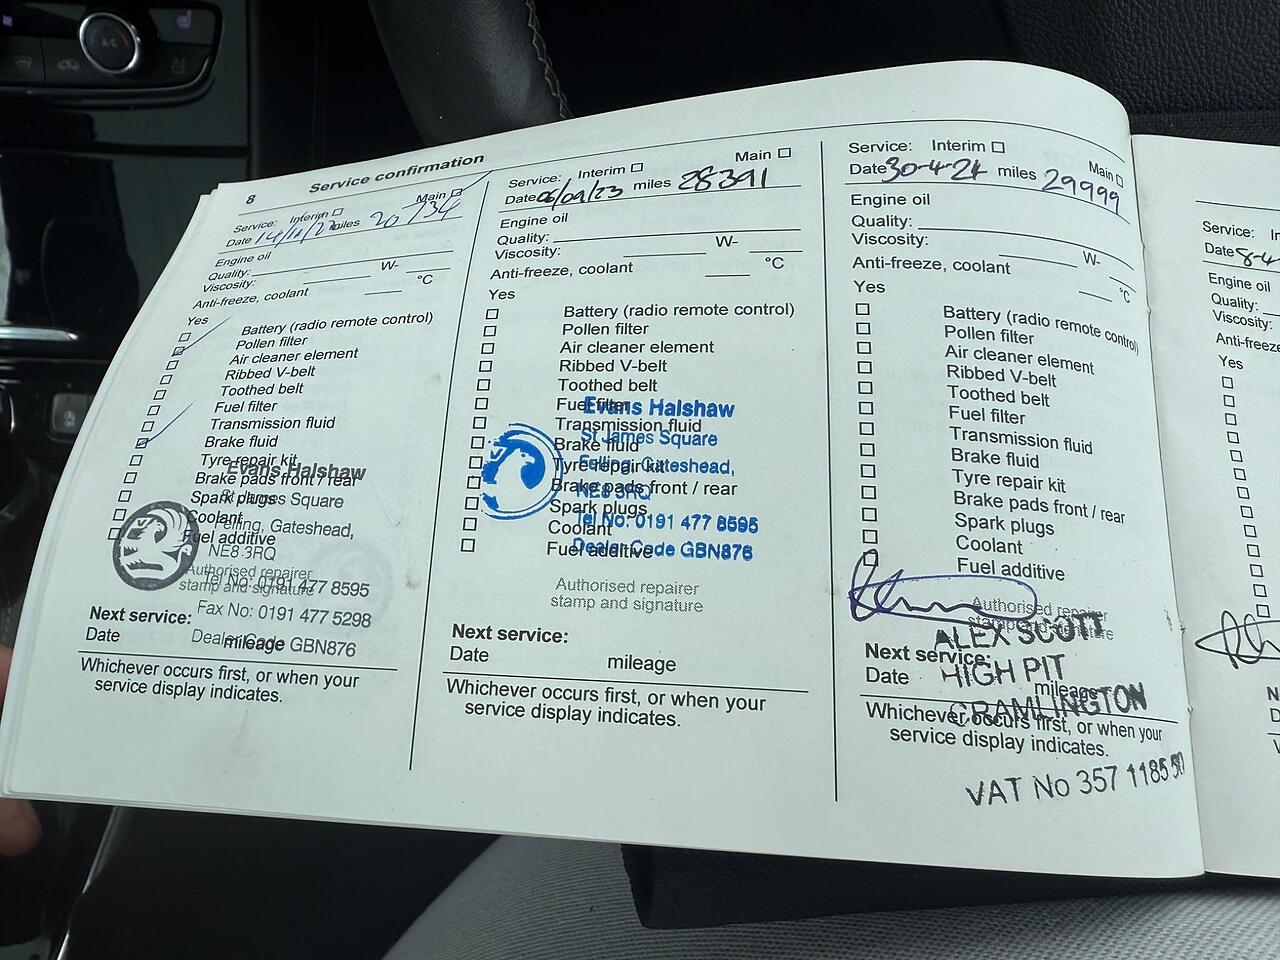 A/C
8
Service confirmation
Service: Interim Main
Date 14/11/22 miles 20734
Engine oil
Quality: W-
Viscosity:
Anti-freeze, coolant °C
Yes
Battery (radio remote control)
Pollen filter
Air cleaner element
Ribbed V-belt
Toothed belt
Fuel filter
Transmission fluid
Brake fluid
Tyre repair kit
Brake pads front / rear
Spark plugs
Coolant
Fuel additive
Evans Halshaw
St James Square
Felling, Gateshead,
NE8 3RQ
Tel No: 0191 477 8595
Fax No: 0191 477 5298
Dealer Code GBN876
Authorised repairer
stamp and signature
Next service:
Date mileage
Whichever occurs first, or when your
service display indicates.
Service: Interim Main
Date 06/09/23 miles 28391
Engine oil
Quality: W-
Viscosity:
Anti-freeze, coolant °C
Yes
Battery (radio remote control)
Pollen filter
Air cleaner element
Ribbed V-belt
Toothed belt
Fuel filter
Transmission fluid
Brake fluid
Tyre repair kit
Brake pads front / rear
Spark plugs
Coolant
Fuel additive
Evans Halshaw
St James Square
Felling, Gateshead,
NE8 3RQ
Tel No: 0191 477 8595
Dealer Code GBN876
Authorised repairer
stamp and signature
Next service:
Date mileage
Whichever occurs first, or when your
service display indicates.
Service: Interim Main
Date 30-4-24 miles 29999
Engine oil
Quality: W-
Viscosity:
Anti-freeze, coolant °C
Yes
Battery (radio remote control)
Pollen filter
Air cleaner element
Ribbed V-belt
Toothed belt
Fuel filter
Transmission fluid
Brake fluid
Tyre repair kit
Brake pads front / rear
Spark plugs
Coolant
Fuel additive
Authorised repairer
stamp and signature
ALEX SCOTT
HIGH PIT
CRAMLINGTON
VAT No 357 1185
Next service:
Date mileage
Whichever occurs first, or when your
service display indicates.
Service:
Date 8-4
Engine oil
Quality:
Viscosity:
Anti-freeze
Yes